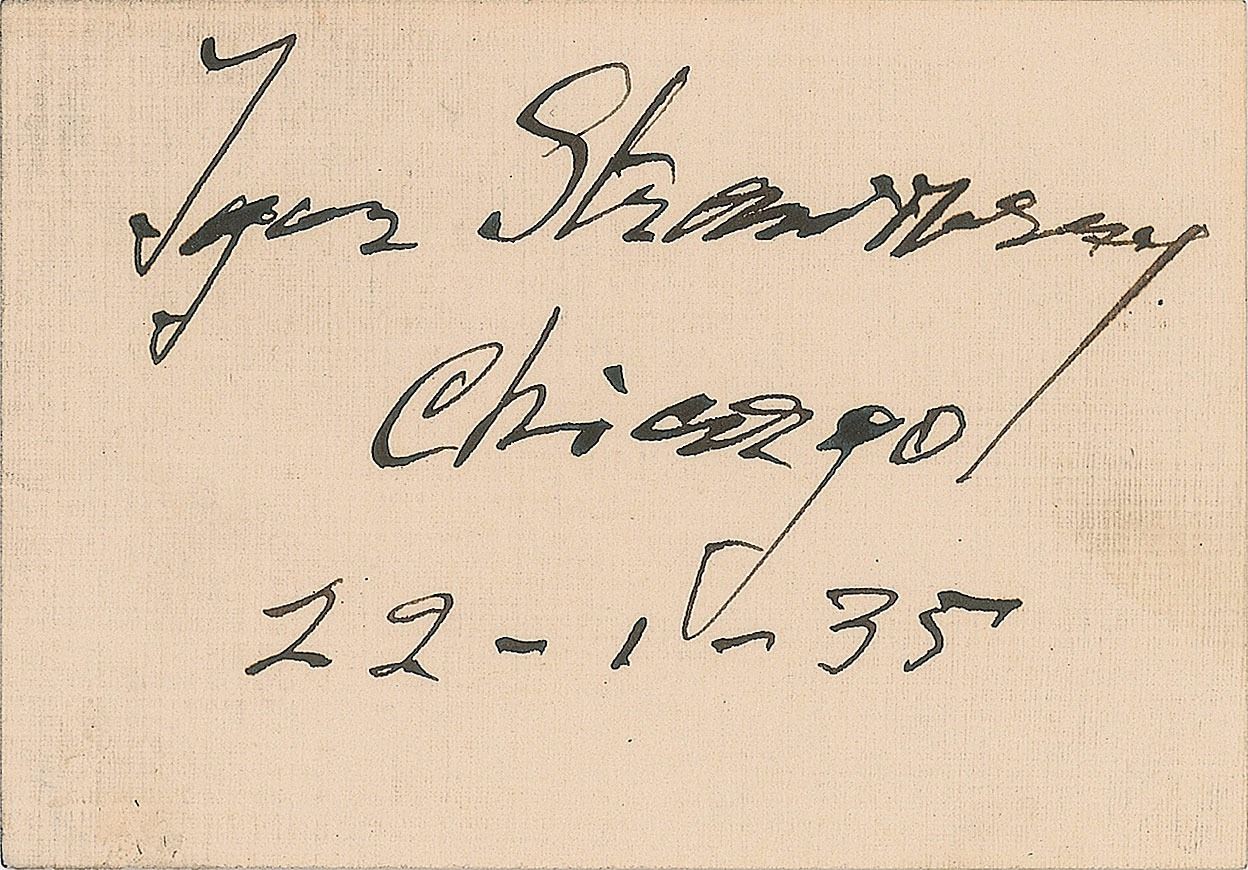 Igor Strawinsky
Chicago
22-1-35